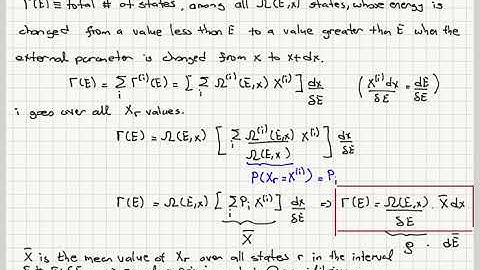 Γ(E) ≡ total # of states, among all Ω(E,x) states, whose energy is
changed from a value less than E to a value greater than E when the
external parameter is changed from x to x+dx.
Γ(E) = Σ_i Γ^(i)(E) = [ Σ_i Ω^(i)(E,x) X^(i) ] dx/δE ( X^(i)dx/δE = dE/δE )
i goes over all X_r values.
Γ(E) = Ω(E,x) [ Σ_i Ω^(i)(E,x)/Ω(E,x) X^(i) ] dx/δE
P(X_r = X^(i)) = P_i
Γ(E) = Ω(E,x) [ Σ_i P_i X^(i) ] dx/δE ⇒ Γ(E) = Ω(E,x)/δE . X̄ dx
X̄ ρ . dE
X̄ is the mean value of X_r over all states r in the interval